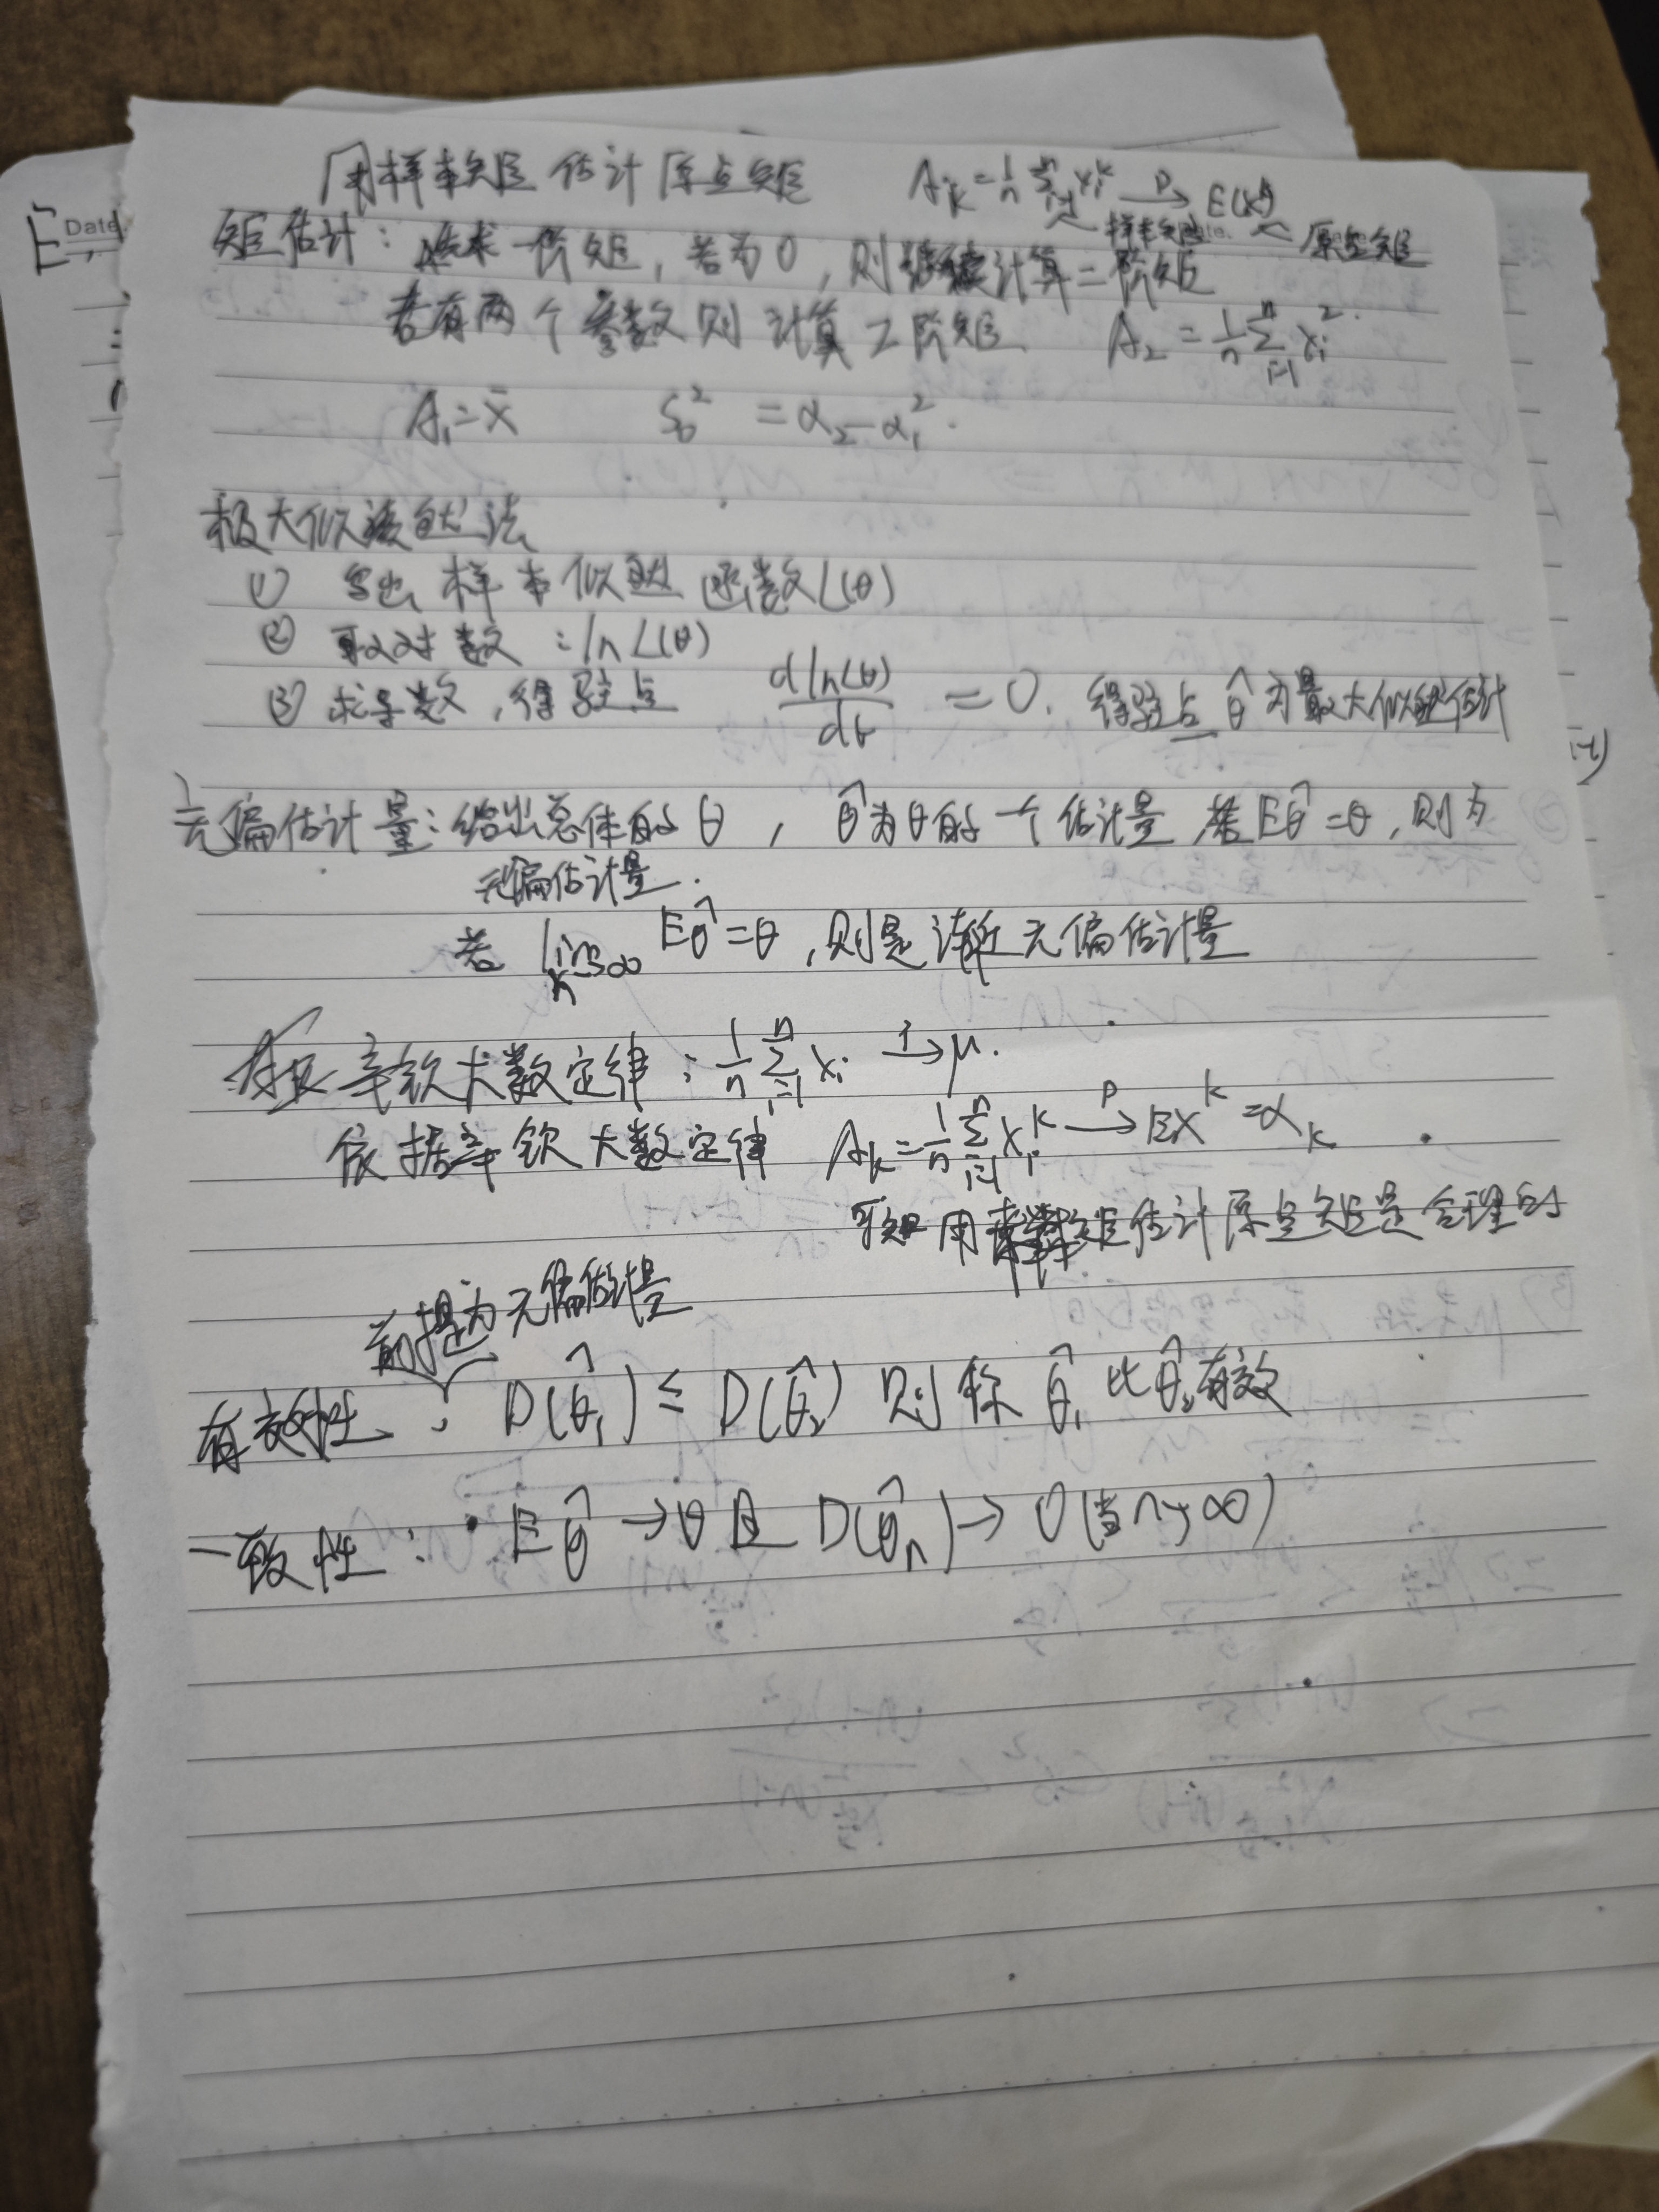 用样本矩估计原点矩 A_k = 1/n Σ_{i=1}^n x_i^k →^P E(X^k)
样本矩 原点矩
矩估计：先求一阶矩，若为0，则继续计算二阶矩
若有两个参数则计算二阶矩 A_2 = 1/n Σ_{i=1}^n x_i^2.
A_1 = x̄ S_0^2 = α_2 - α_1^2.
极大似然法
① 写出样本似然函数L(θ)
② 取对数：ln L(θ)
③ 求导数，得驻点 d ln L(θ)/dθ = 0. 得驻点 θ̂ 为最大似然估计
无偏估计量：给出总体的 θ ， θ̂为θ的一个估计量 若Eθ̂=θ，则为
无偏估计量.
若 lim_{n→∞} Eθ̂=θ，则是渐近无偏估计量
辛钦大数定律：1/n Σ_{i=1}^n x_i →^P μ.
依据辛钦大数定律 A_k = 1/n Σ_{i=1}^n x_i^k →^P EX^k = α_k
可知用样本矩估计原点矩是合理的
前提为无偏估计量
有效性：D(θ̂_1) ≤ D(θ̂_2) 则称 θ̂_1 比 θ̂_2 有效
一致性：Eθ̂ → θ 且 D(θ̂_n) → 0 (当n→∞)
Date
E